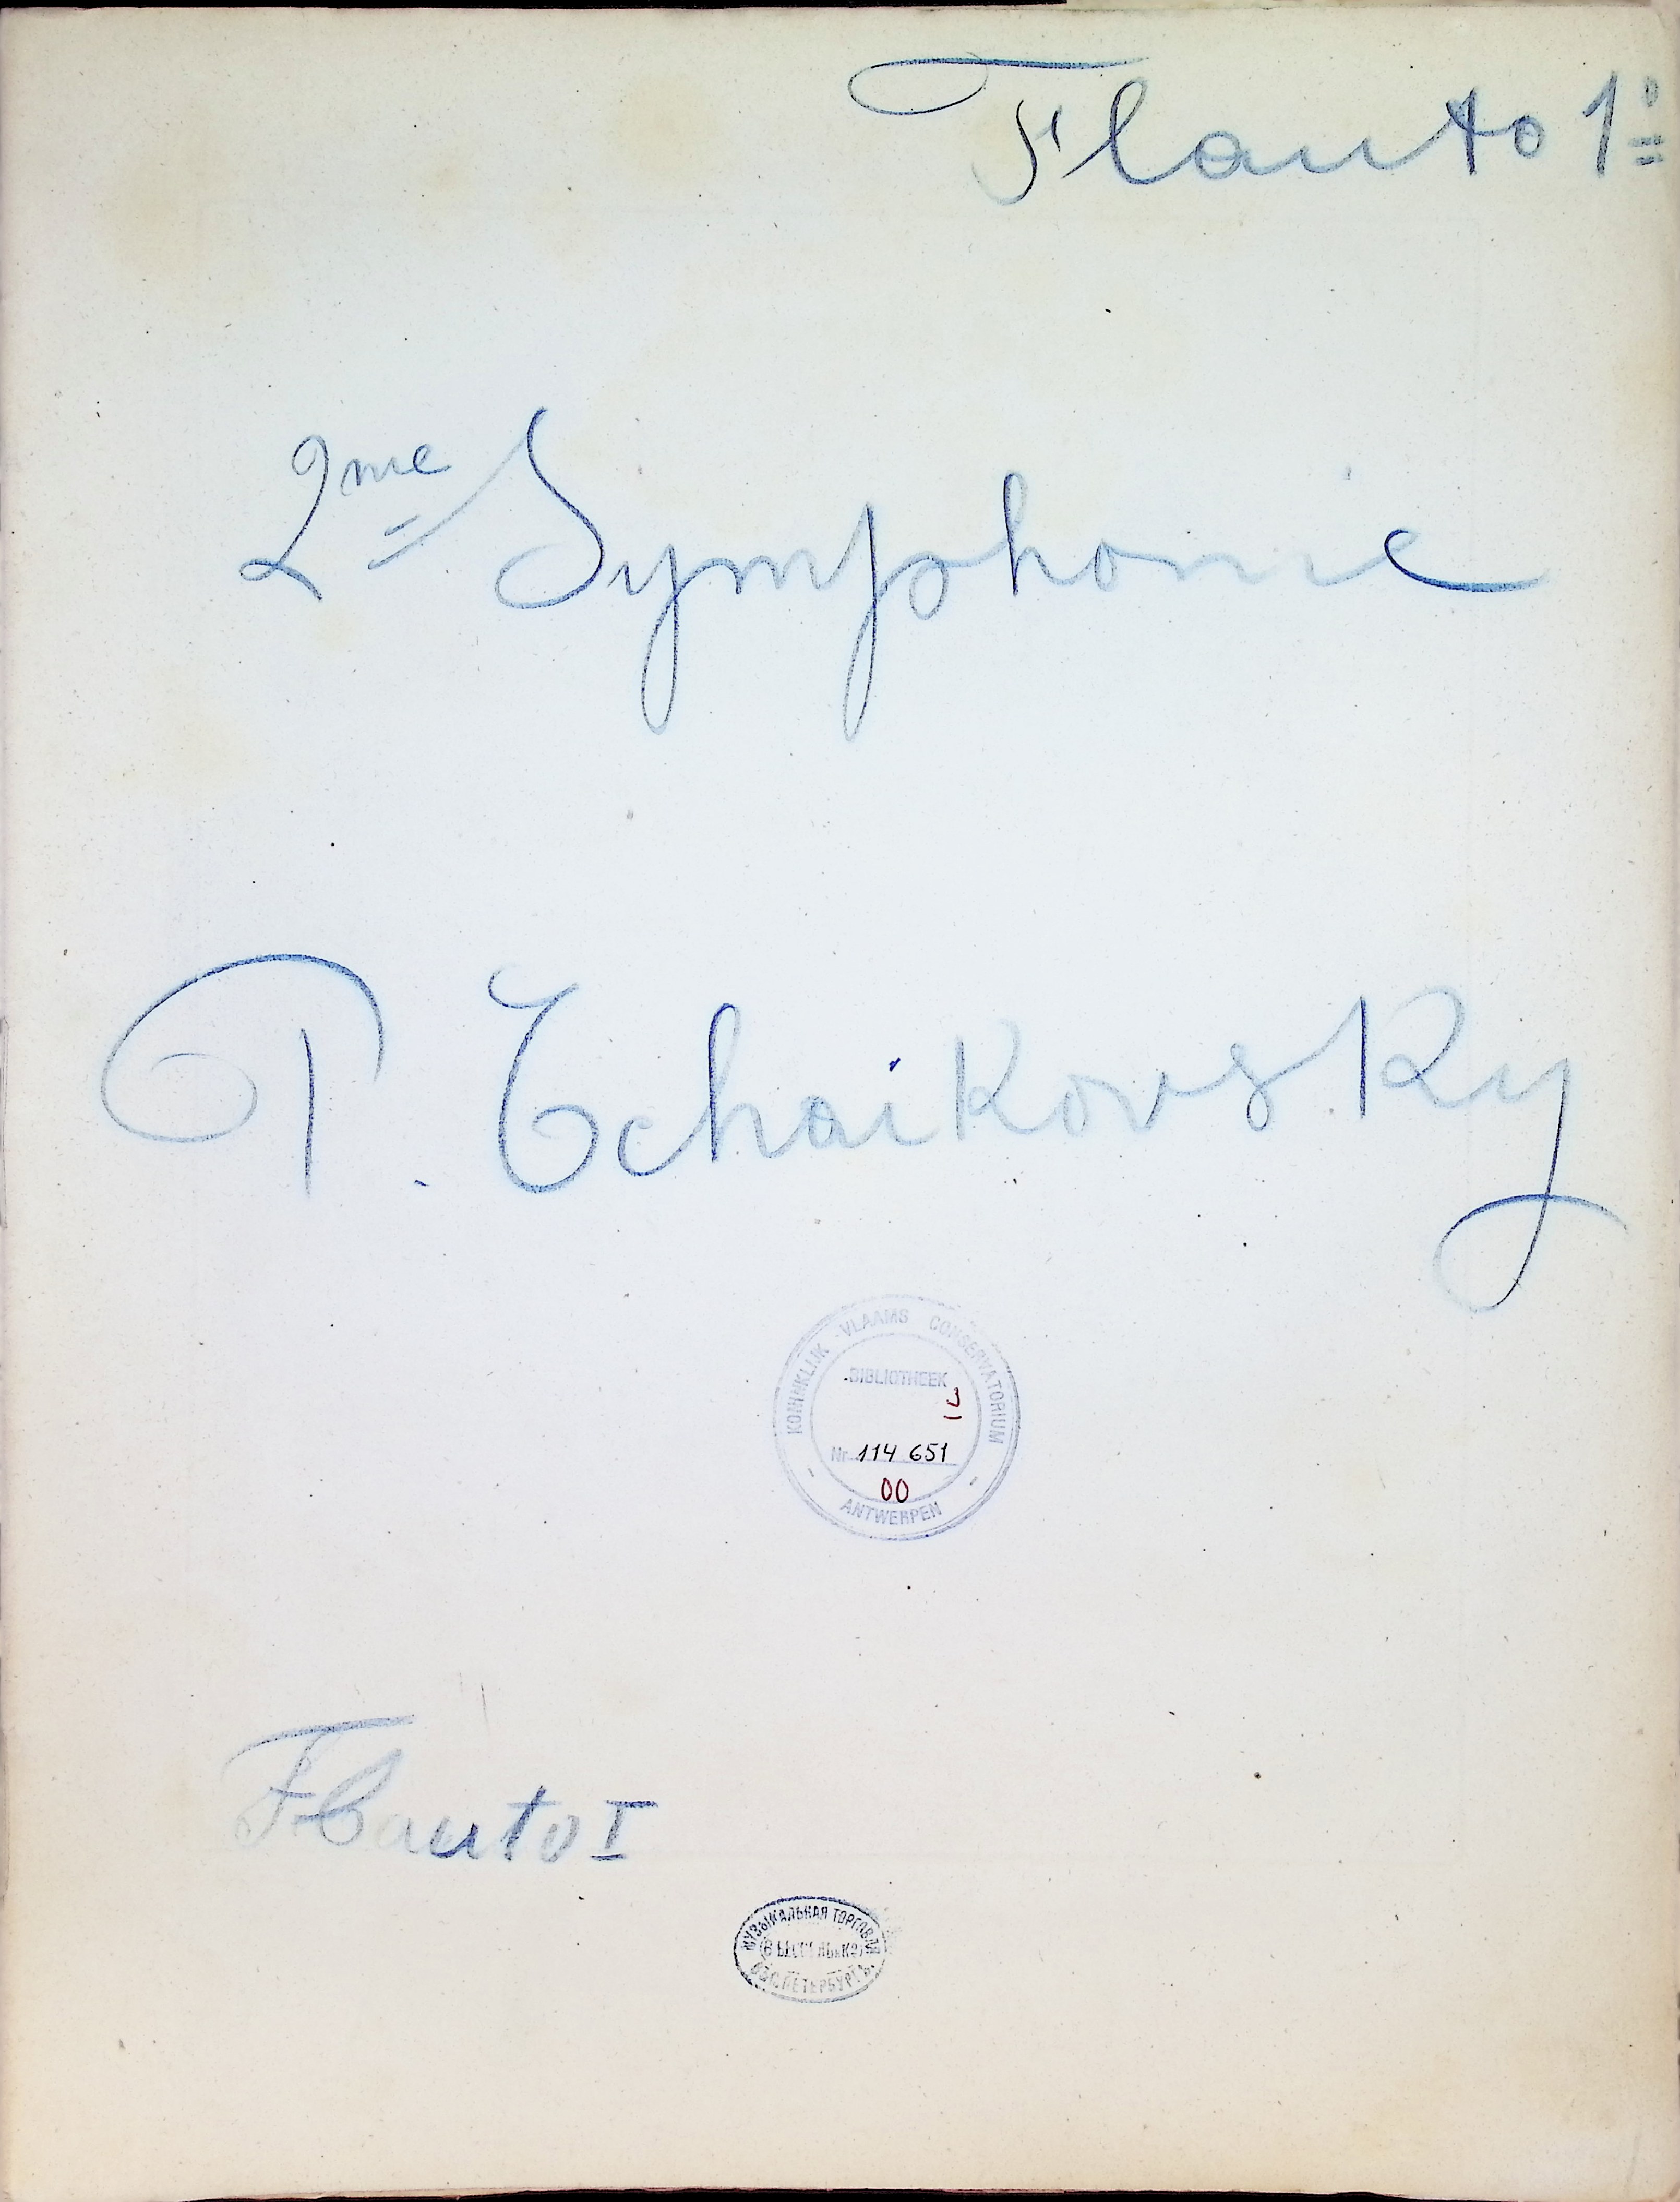 Flauto 1º
2me Symphonie
P. Tchaikovsky
KONINKLIJK VLAAMS CONSERVATORIUM
BIBLIOTHEEK
Nr. 114 651
00
ANTWERPEN
Flauto I
МУЗЫКАЛЬНАЯ ТОРГОВЛЯ
С. ПЕТЕРБУРГЪ.